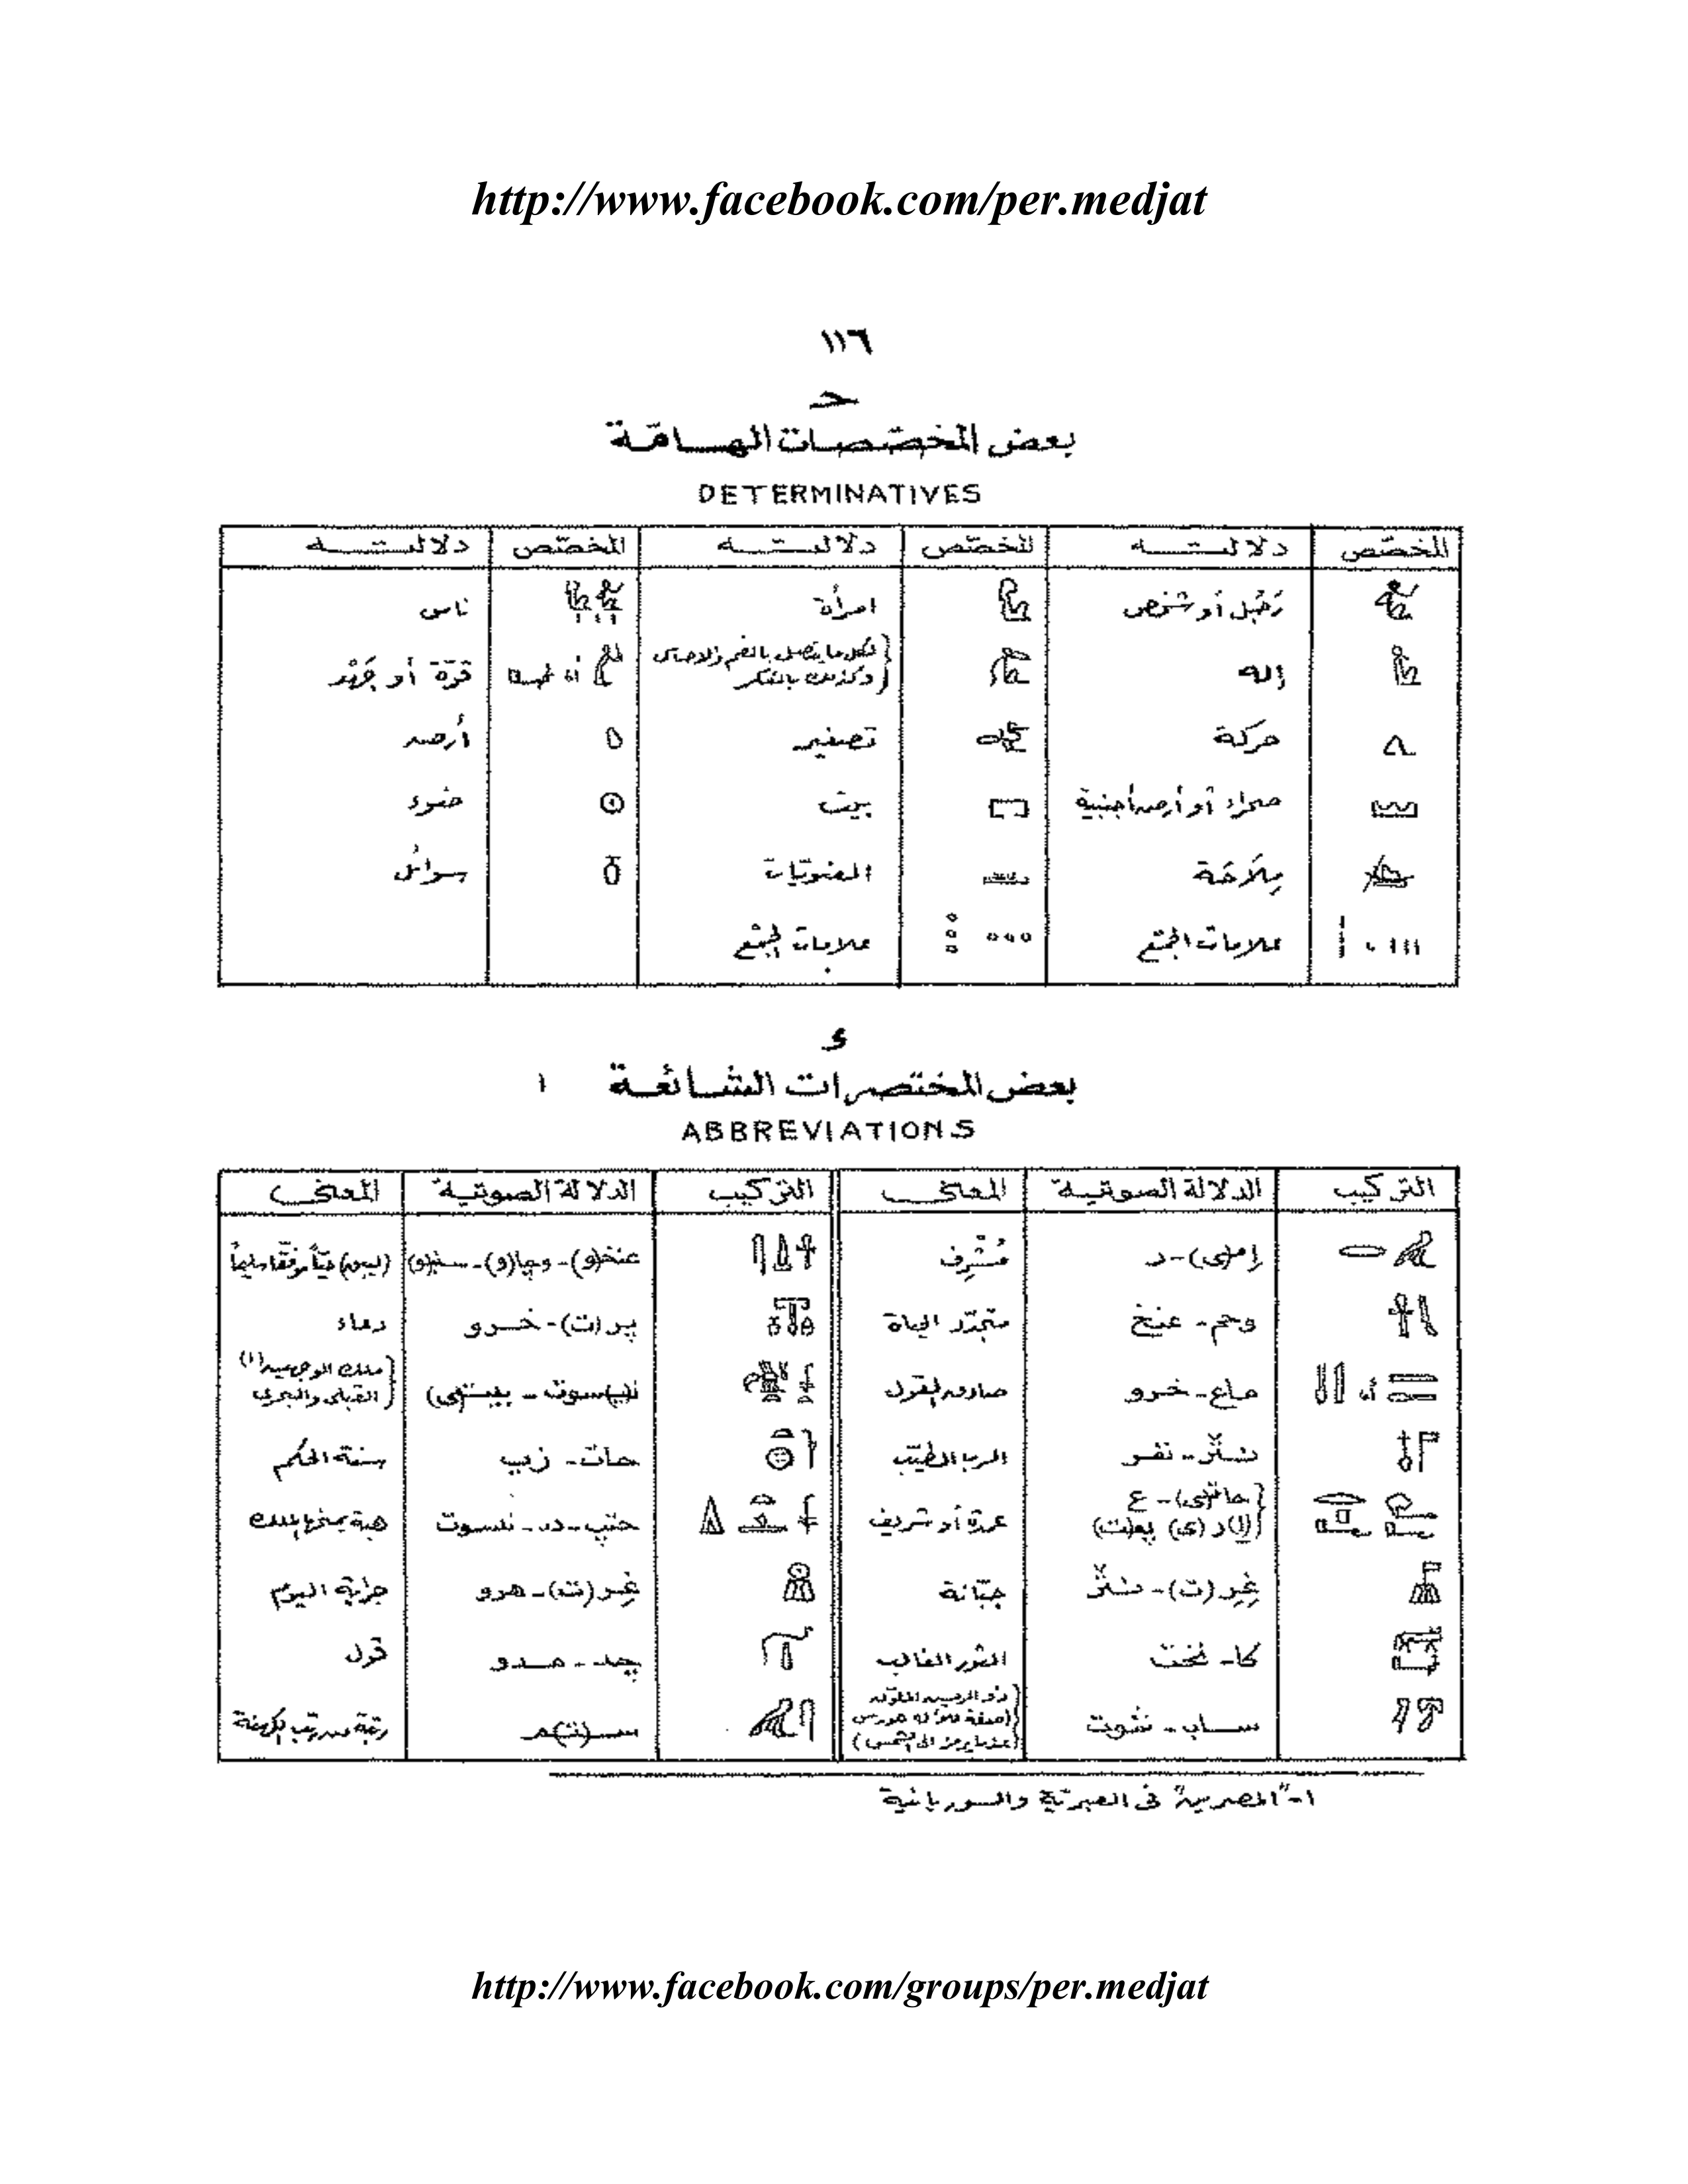 http://www.facebook.com/per.medjat
١١٦
حـ
بعض المخصّصات الهامّة
DETERMINATIVES
المخصّص دلالته المخصّص دلالته المخصّص دلالته
رَجُل أو شخص امرأة ناس
إله لكل ما يتصل بالفم والاحساس وكذلك بالفكر أو قوّة أو جَهْد
حركة تصغير أرض
صحراء أو أرض أجنبية بيت ضوء
مِلَاحَة المعنويّات سوائل
علامات الجمْع علامات الجمْع
د
بعض المختصرات الشائعة ١
ABBREVIATIONS
التركيب الدلالة الصوتية المعنى التركيب الدلالة الصوتية المعنى
إم(ى)-ر مُشْرِف عنخ(و)-وچا(و)-سنب(و) (ليبق) حيّاً موفّقا سليماً
وحم-عنخ متجدّد الحياة پر(ت)-خرو دعاء
أو ماع-خرو صادق القول ن(ى)سوت-بيت(ى) ملك الوجهين (١) القبلى والبحرى
نثر-نفر الرب الطيّب حات-زپ سنة الحكم
حات(ى)-ع (إ)ر(ى) پع(ت) عمدة أو شريف حتپ-د-نسوت هبة يمنحها الملك
غِر(ت)-نثر جبّانة غِر(ت)-هرو جراية اليوم
كا-نخت الثور الغالب چد-مدو قول
ساب-شوت ذو الريش الملوّن (صفة للإله حورس عندما يرمز الى الشمس) س(ت)م رتبة من رتب الكهنة
١-"المصرية" فى العبرية والسوريانية
http://www.facebook.com/groups/per.medjat